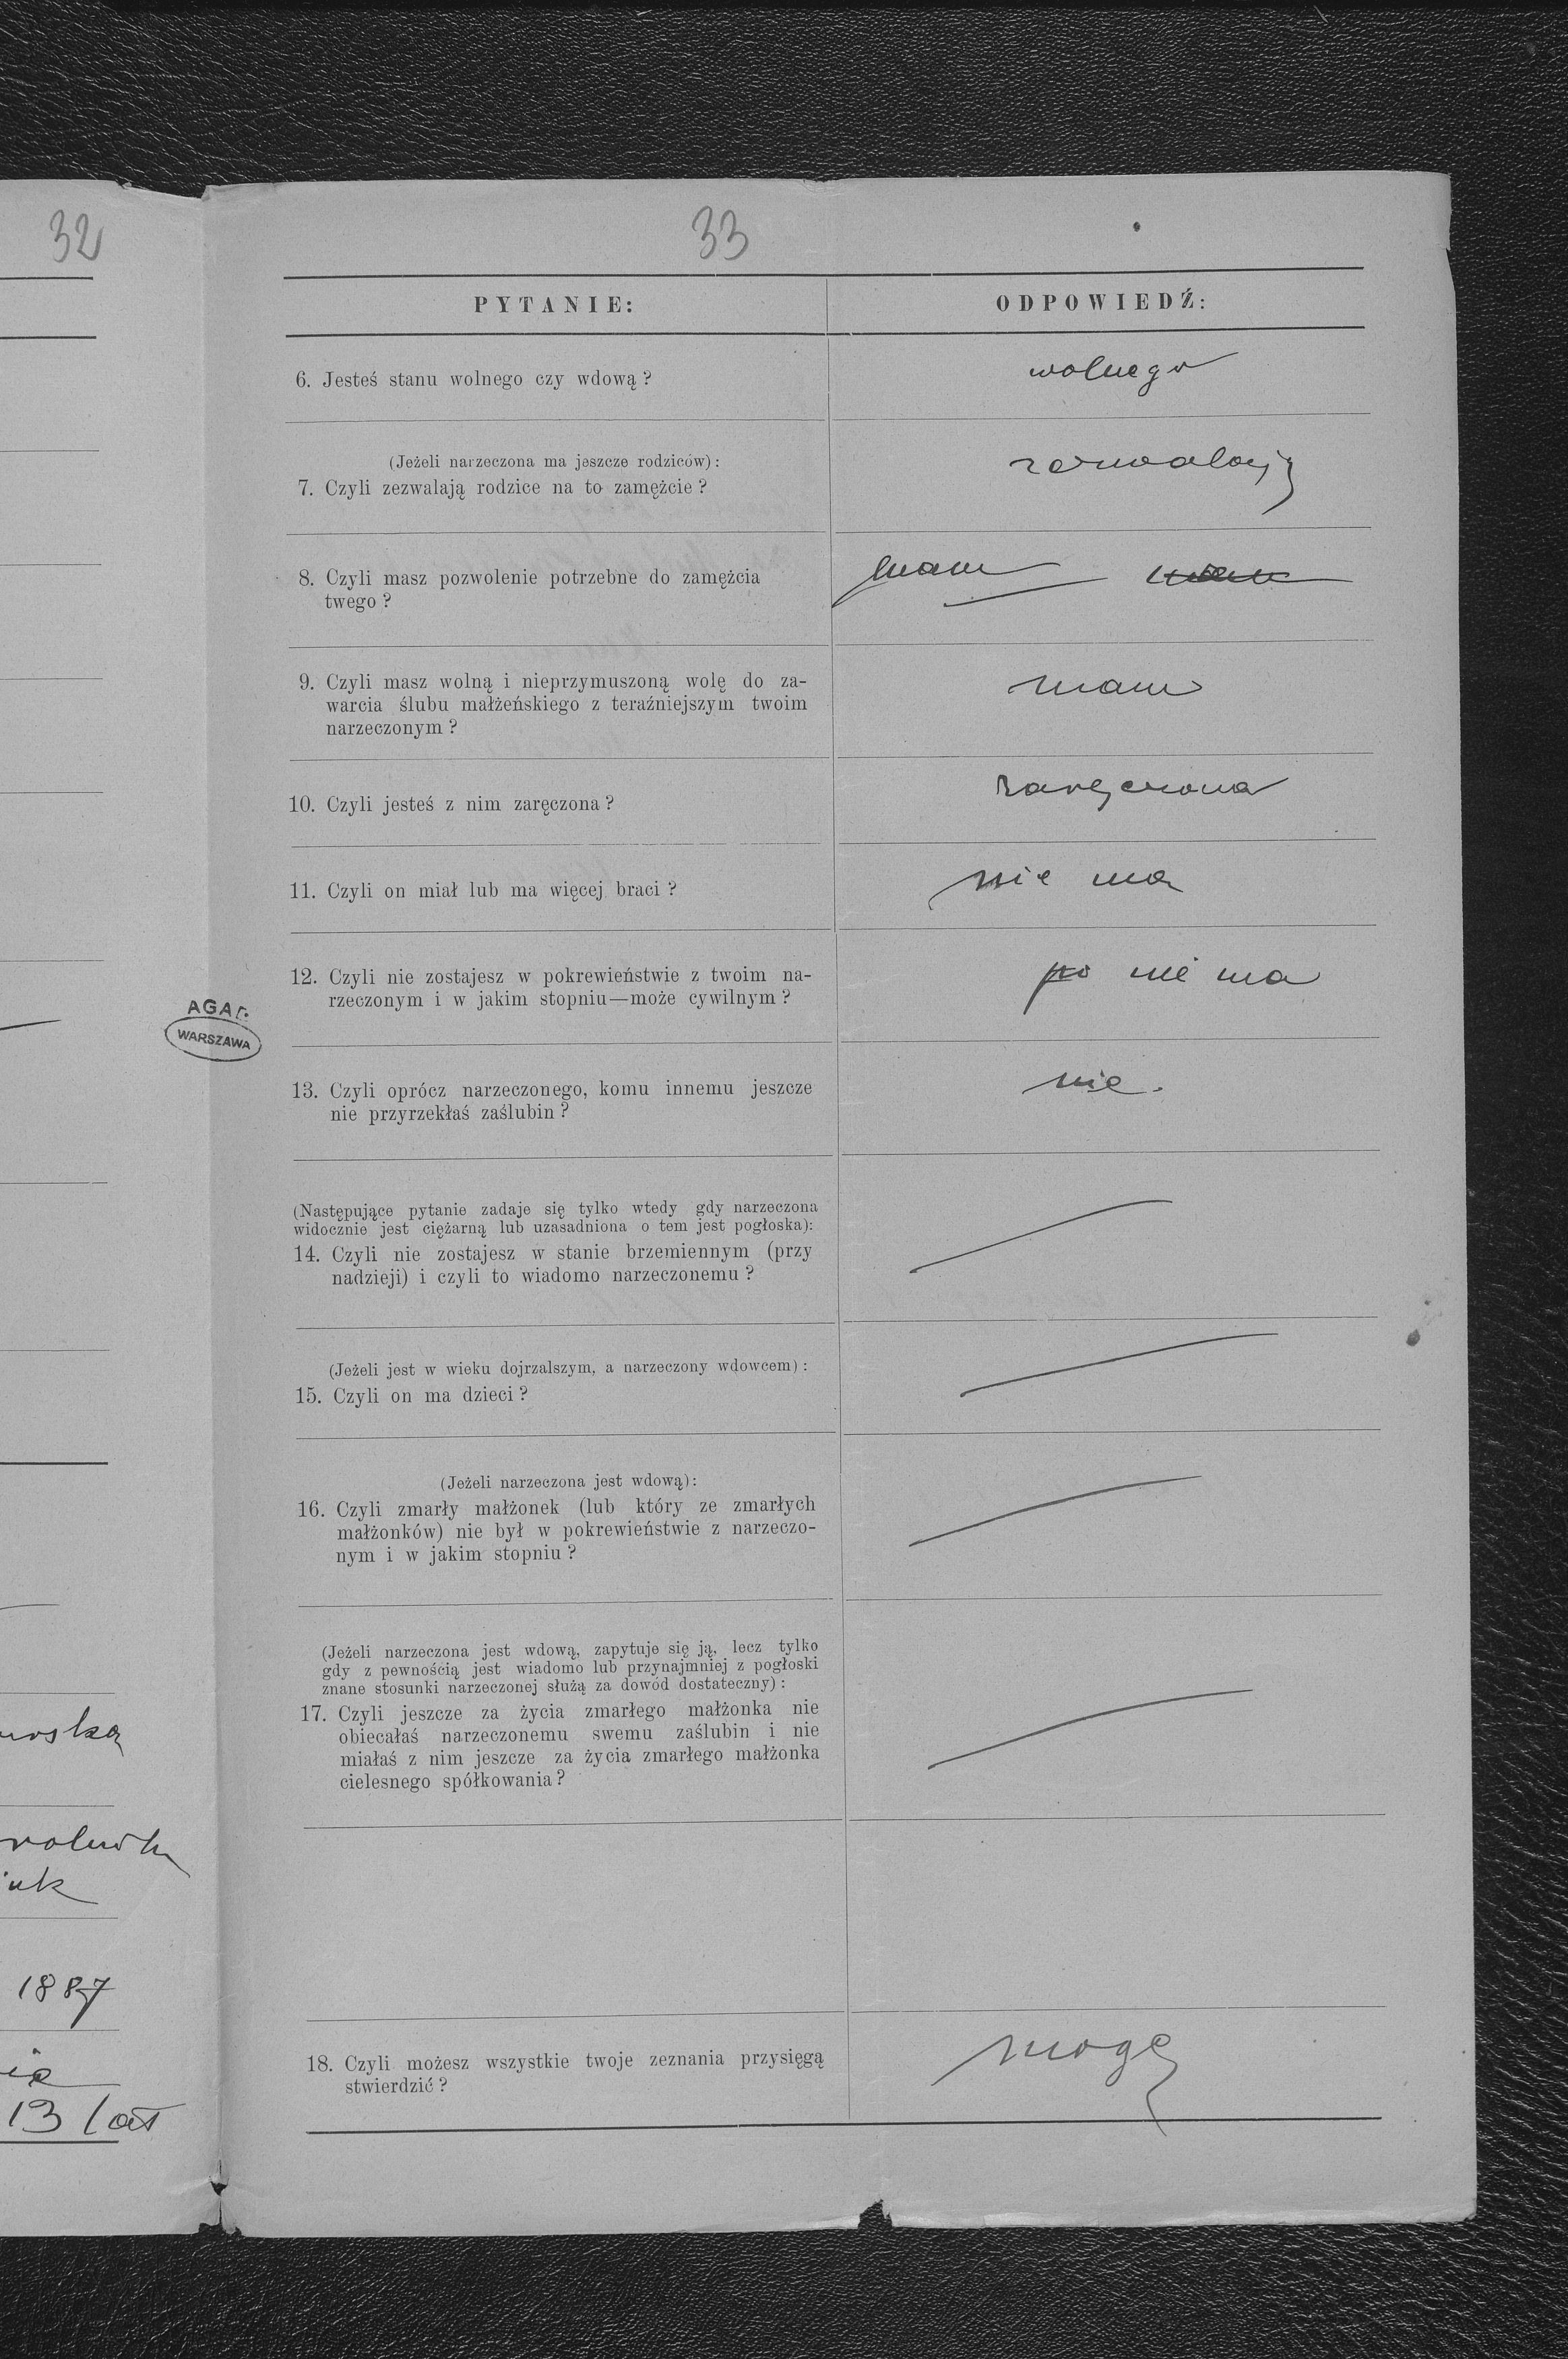 32
wską
1887
13 lat
AGAD
WARSZAWA
33
PYTANIE:
ODPOWIEDŹ:
6. Jesteś stanu wolnego czy wdową?
wolnego
(Jeżeli narzeczona ma jeszcze rodziców):
7. Czyli zezwalają rodzice na to zamęźcie?
zezwalają
8. Czyli masz pozwolenie potrzebne do zamęźcia
twego?
mam
9. Czyli masz wolną i nieprzymuszoną wolę do za-
warcia ślubu małżeńskiego z teraźniejszym twoim
narzeczonym?
mam
10. Czyli jesteś z nim zaręczona?
zaręczona
11. Czyli on miał lub ma więcej braci?
nie ma
12. Czyli nie zostajesz w pokrewieństwie z twoim na-
rzeczonym i w jakim stopniu—może cywilnym?
nie ma
13. Czyli oprócz narzeczonego, komu innemu jeszcze
nie przyrzekłaś zaślubin?
nie.
(Następujące pytanie zadaje się tylko wtedy gdy narzeczona
widocznie jest ciężarną lub uzasadniona o tem jest pogłoska):
14. Czyli nie zostajesz w stanie brzemiennym (przy
nadzieji) i czyli to wiadomo narzeczonemu?
(Jeżeli jest w wieku dojrzalszym, a narzeczony wdowcem):
15. Czyli on ma dzieci?
(Jeżeli narzeczona jest wdową):
16. Czyli zmarły małżonek (lub który ze zmarłych
małżonków) nie był w pokrewieństwie z narzeczo-
nym i w jakim stopniu?
(Jeżeli narzeczona jest wdową, zapytuje się ją, lecz tylko
gdy z pewnością jest wiadomo lub przynajmniej z pogłoski
znane stosunki narzeczonej służą za dowód dostateczny):
17. Czyli jeszcze za życia zmarłego małżonka nie
obiecałaś narzeczonemu swemu zaślubin i nie
miałaś z nim jeszcze za życia zmarłego małżonka
cielesnego spółkowania?
18. Czyli możesz wszystkie twoje zeznania przysięgą
stwierdzić?
mogę